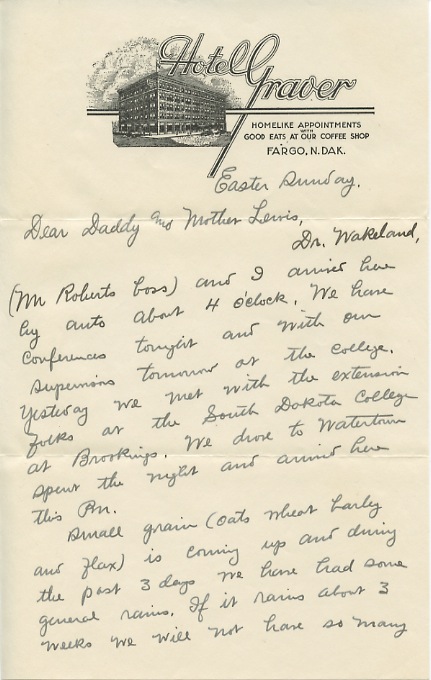 Hotel Graver
HOMELIKE APPOINTMENTS
WITH
GOOD EATS AT OUR COFFEE SHOP
FARGO, N. DAK.
Easter Sunday.
Dear Daddy and Mother Lewis,
Dr. Wakeland,
(Mr Roberts boss) and I arrived here
by auto about 4 o'clock. We have
conferences tonight and with our
supervisors tomorrow at the College.
Yesterday we met with the extension
folks at the South Dakota College
at Brookings. We drove to Watertown
spent the night and arrived here
this Pm.
Small grain (oats wheat barley
and flax) is coming up and during
the past 3 days we have had some
general rains. If it rains about 3
weeks we will not have so many